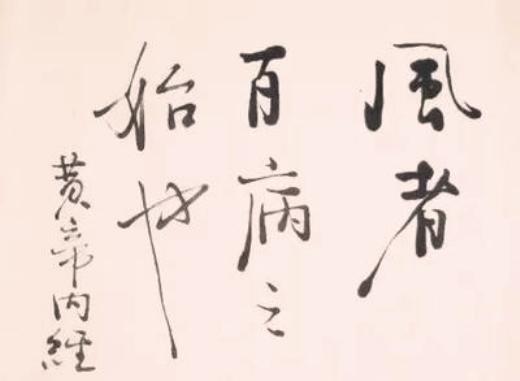 風者
百病之
始也
黄帝内經